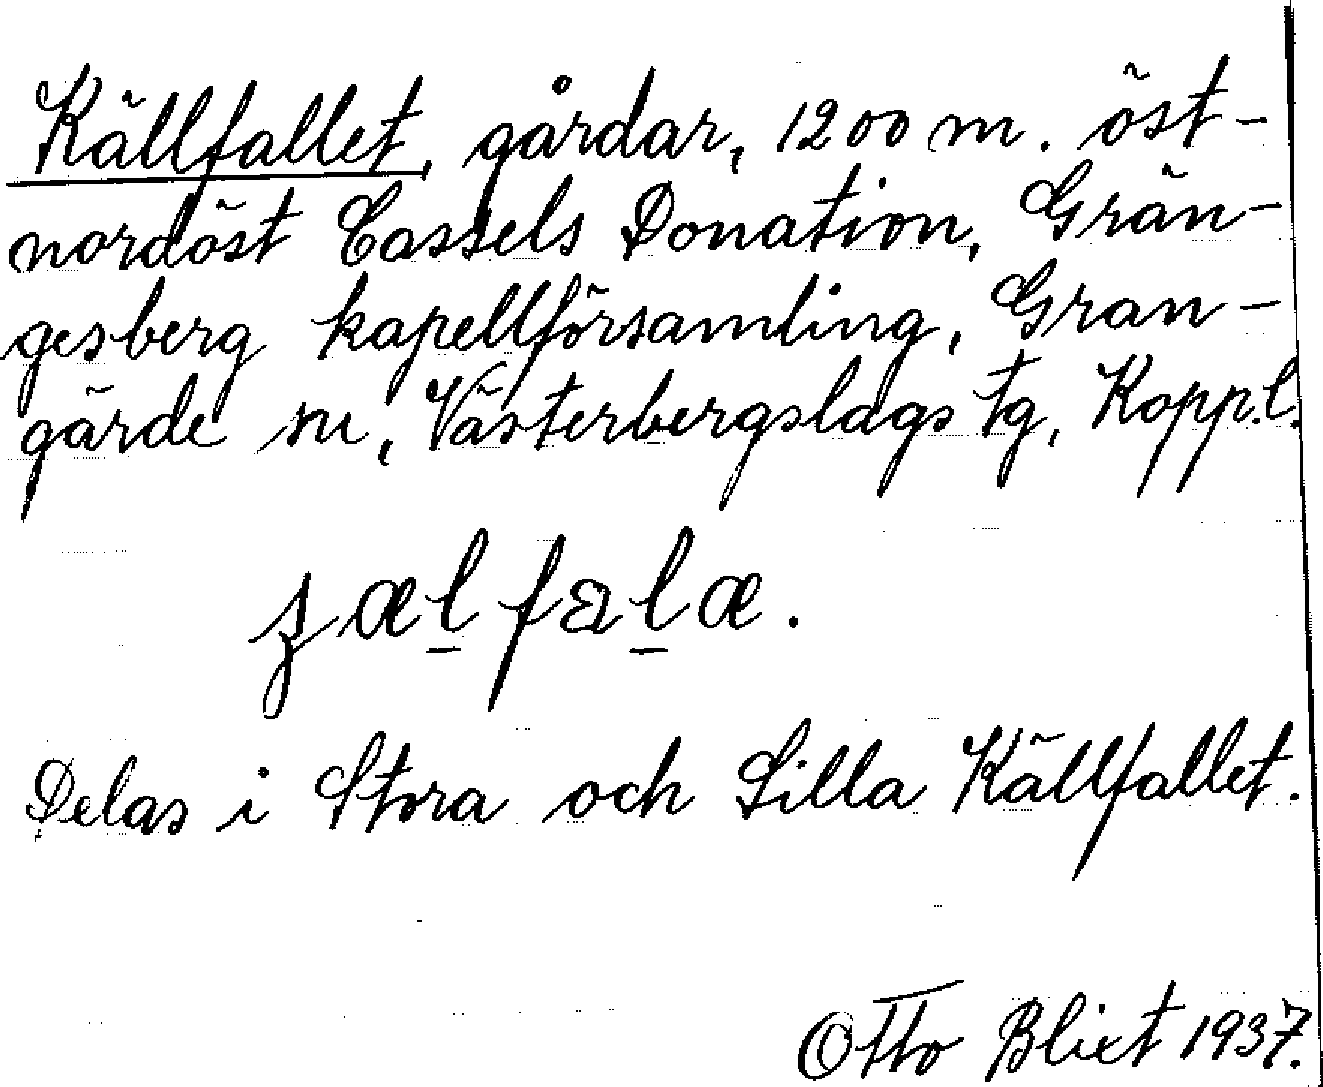 Källfallet, gårdar, 1200 m. öst-
nordöst Cassels Donation, Grän-
gesberg kapellförsamling, Gran-
gärde sn, Västerbergslags tg, Kopp.l.
ʂæl̠fal̠æ.
Delas i Stora och Lilla Källfallet.
Otto Blixt 1937.